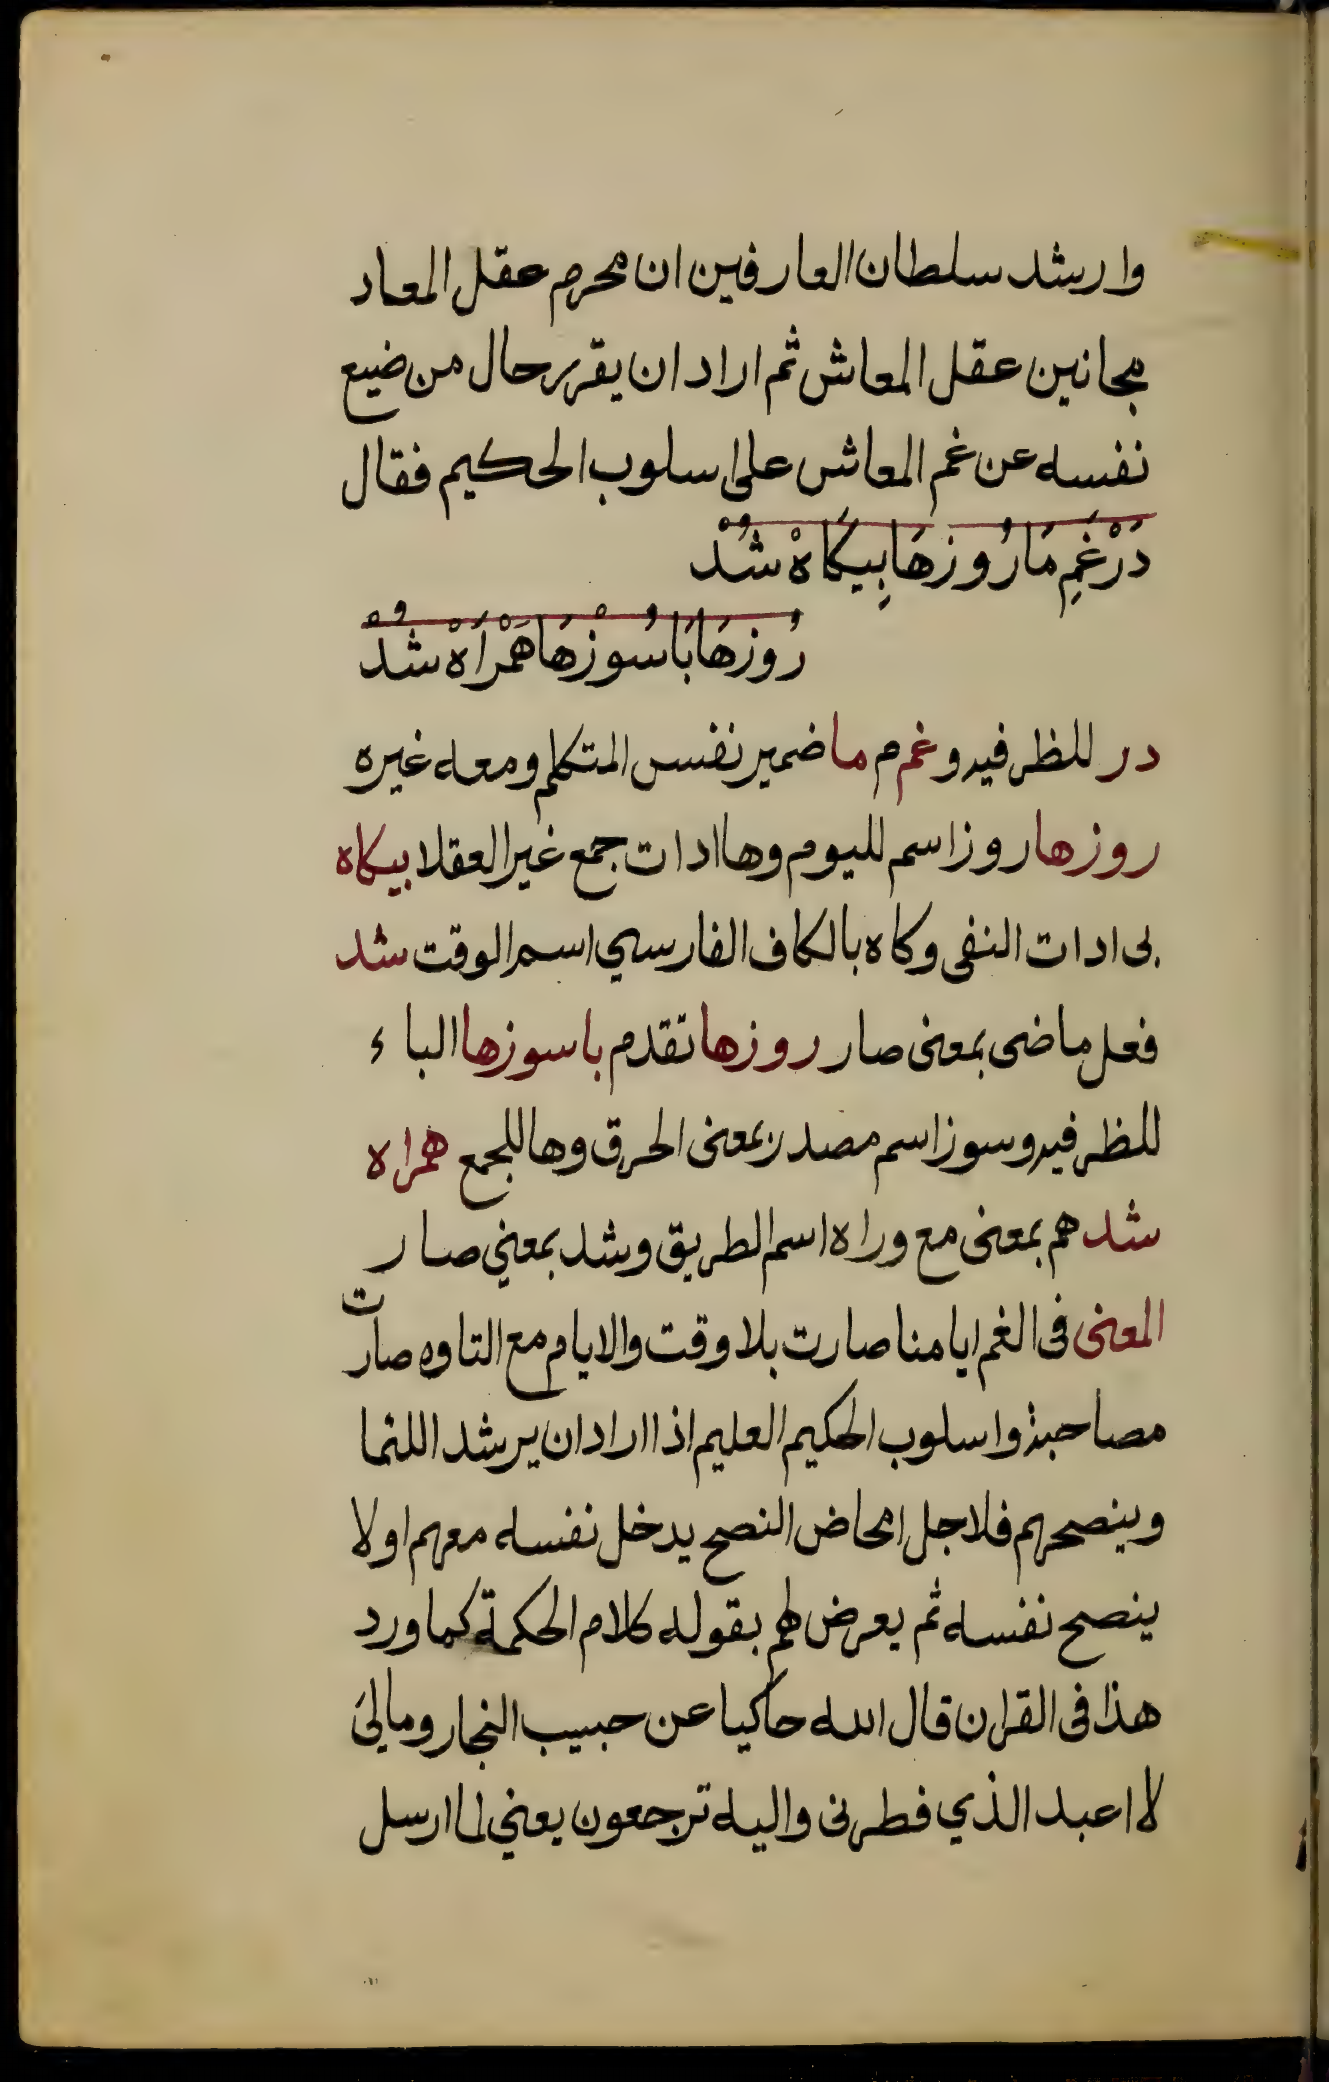 وارشد سلطان العارفين ان محرم عقل المعاد
مجانين عقل المعاش ثم اراد ان يقرر حال من ضيع
نفسه عن غم المعاش على اسلوب الحكيم فقال
دَرْغَمِ مَا رُوزهَا بِيكَاهْ شُدْ
رُوزهَا بَا سُوزْهَا هَمْرَاهْ شُدْ
در للظرفيه وغم م ما ضمير نفس المتكلم ومعه غيره
روزها روز اسم لليوم وها ادات جمع غير العقلا بيكاه
بى ادات النفى وكاه بالكاف الفارسي اسم الوقت شد
فعل ماضى بمعنى صار روزها تقدم باسوزها الباء
للظرفيه وسوز اسم مصدر بمعنى الحرق وها للجمع همراه
شد هم بمعنى مع وراه اسم الطريق وشد بمعني صار
المعنى فى الغم ايامنا صارت بلا وقت والايام مع التاوه صارت
مصاحبة واسلوب الحكيم العليم اذا اراد ان يرشد اللئما
وينصحهم فلاجل امحاض النصح يدخل نفسه معهم اولا
ينصح نفسه ثم يعرض لهم بقوله كلام الحكمة كما ورد
هذا فى القران قال الله حاكيا عن حبيب النجار ومالىَ
لا اعبد الذي فطرنى واليه ترجعون يعني لما ارسل